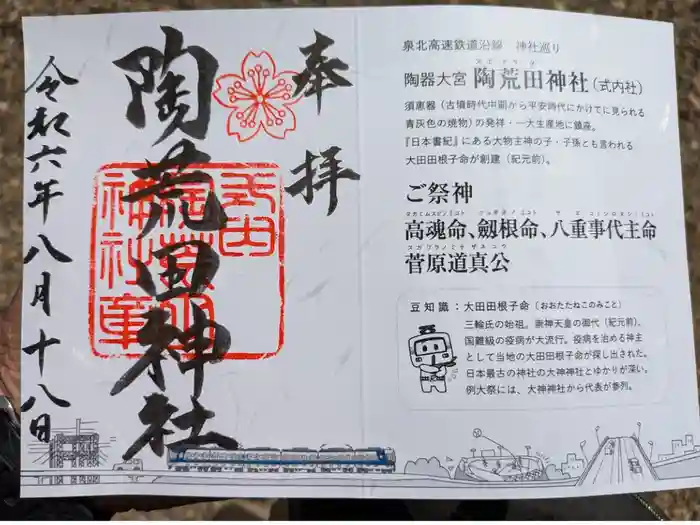 奉拝
陶荒田神社
令和六年八月十八日
泉北高速鉄道沿線 神社巡り
陶器大宮 陶荒田神社(式内社)
須恵器(古墳時代中期から平安時代にかけてに見られる
青灰色の焼物)の発祥・一大生産地に鎮座。
『日本書紀』にある大物主神の子・子孫とも言われる
大田田根子命が創建(紀元前)。
ご祭神
高魂命、劔根命、八重事代主命
菅原道真公
豆知識:大田田根子命(おおたたねこのみこと)
三輪氏の始祖。崇神天皇の御代(紀元前)、
国難級の疫病が大流行。疫病を治める神主
として当地の大田田根子命が探し出された。
日本最古の神社の大神神社とゆかりが深い。
例大祭には、大神神社から代表が参列。